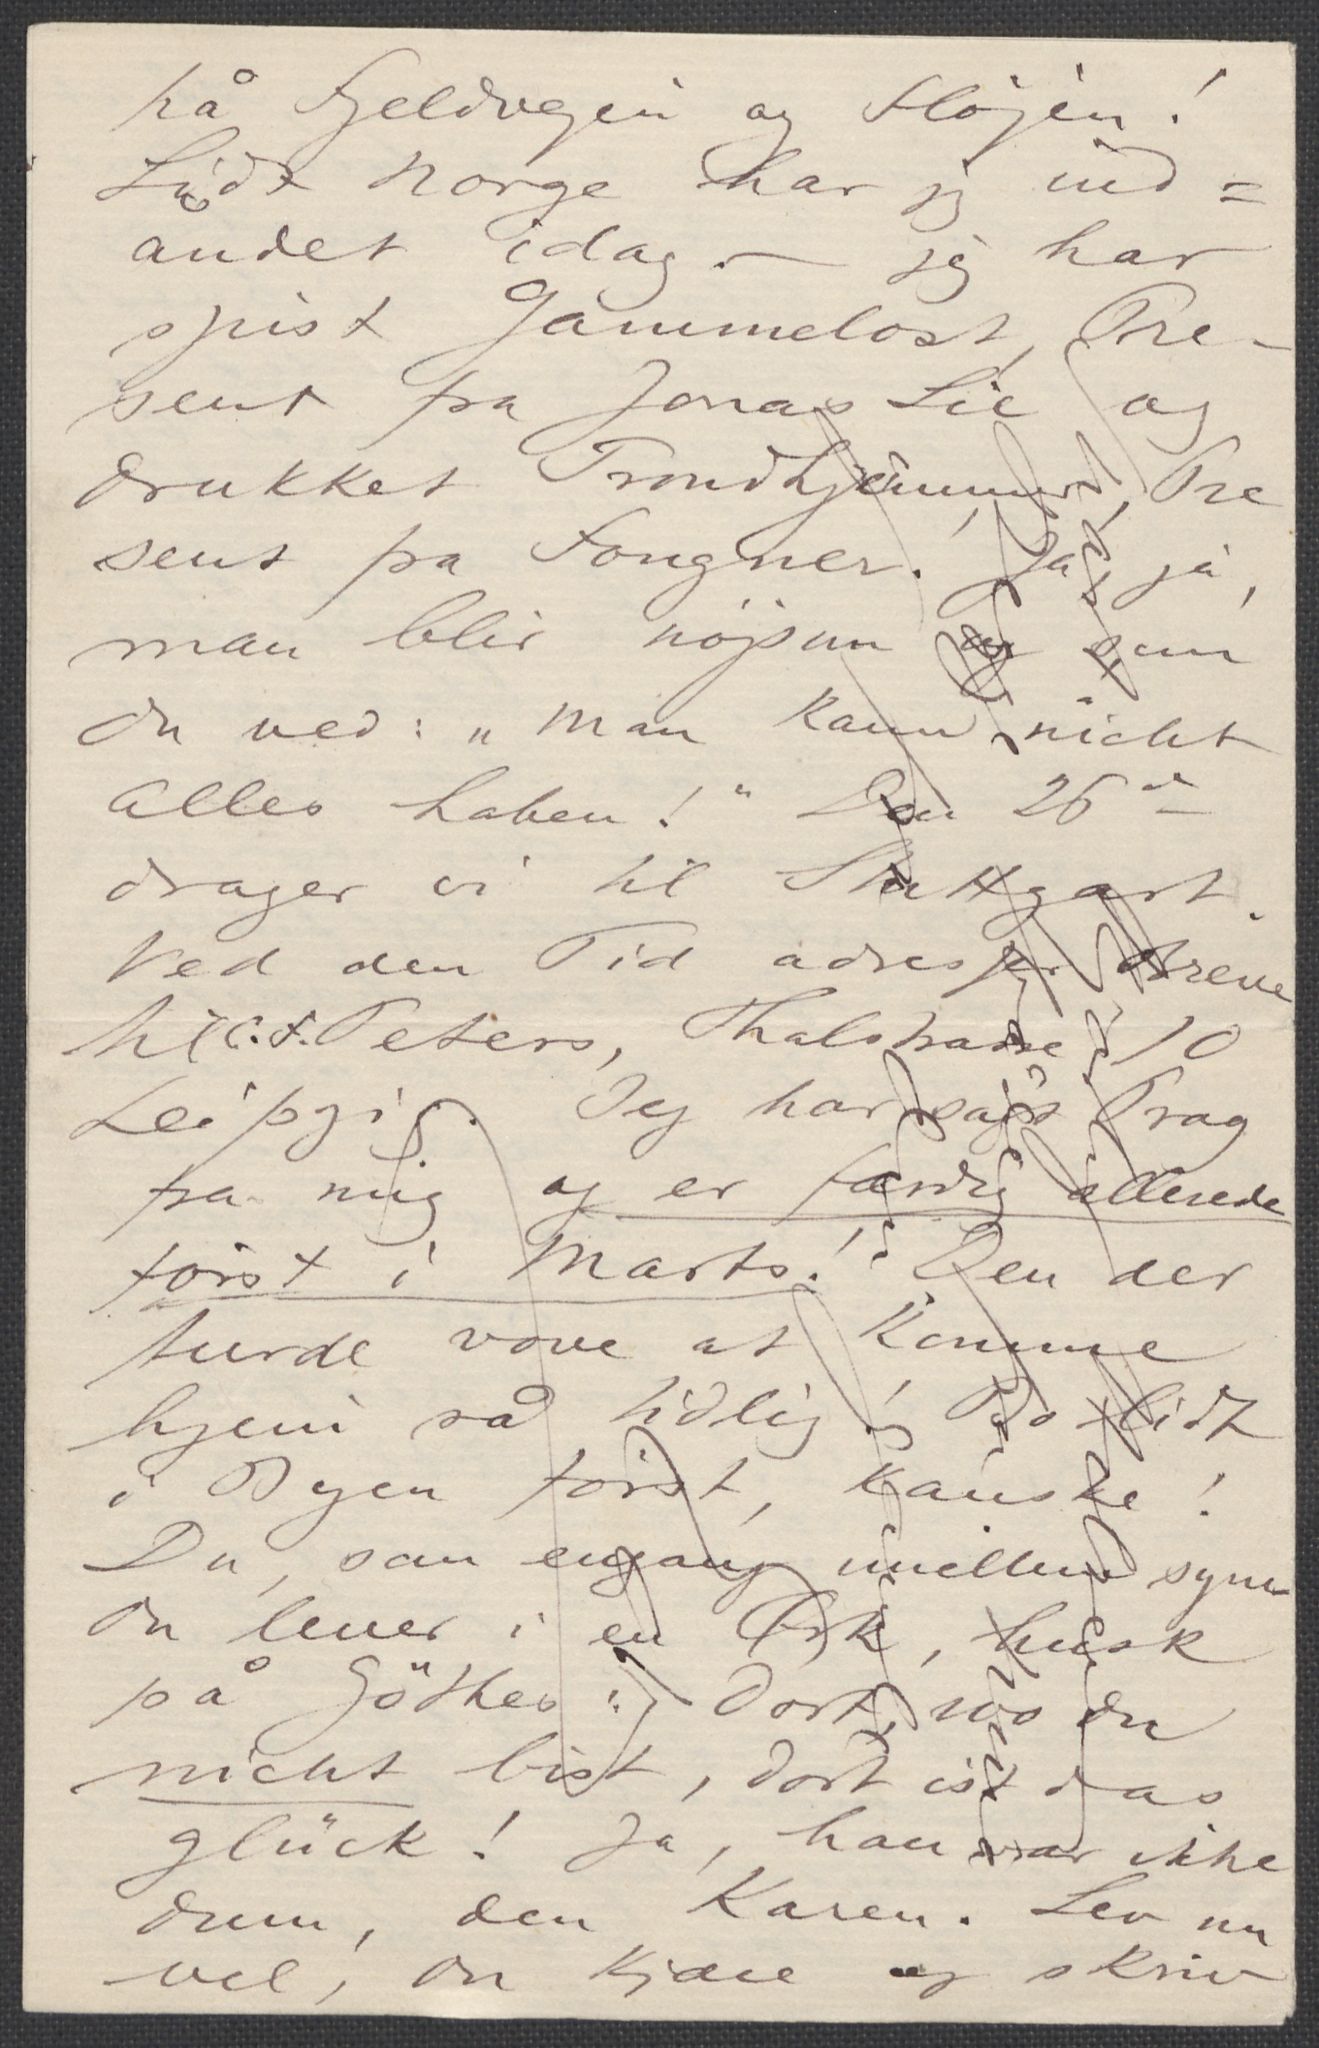 på Fjeldvejen og Fløjen!
Lidt Norge har jeg ind=
åndet idag. – jeg har
spist Gammelost, Pre-
sent fra Jonas Lie og
drukket Trondhjemmer, Pre
sent fra Fougner. Ja, ja,
man blir nøjsom som
du ved: „Man kann nicht
Alles haben!" Den 26de
drager vi til Stuttgart.
Ved den Tid adresser Breve
til C.F. Peters, Thalstrasse 10
Leipzig. Jeg har sagt Prag
fra mig og er færdig allerede
først i Marts! Den der
turde vove at komme
hjem så tidlig! Bo lidt
i Byen først, kanske!
Du, som engang imellem synes
du lever i en Ørk, husk
på Göthes: „Dort, wo du
nicht bist, dort ist das
Glück! Ja, han var ikke
dum, den Karen. Lev nu
vel, du kjære og skriv